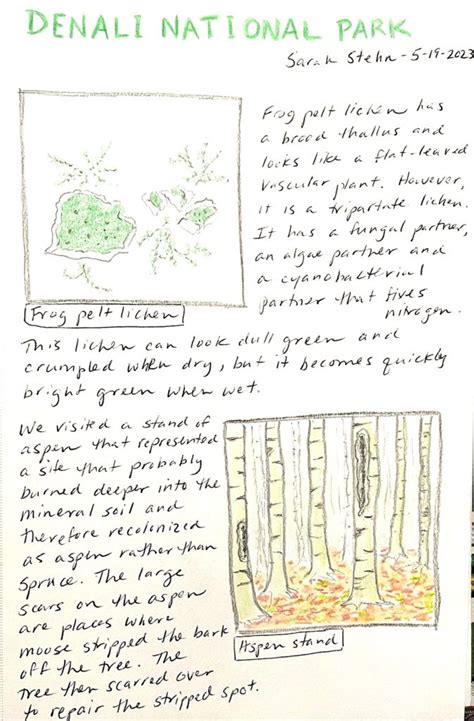 DENALI NATIONAL PARK
Sarah Stehn - 5-19-2023
Frog pelt lichen has
a broad thallus and
looks like a flat-leaved
vascular plant. However,
it is a tripartate lichen.
It has a fungal partner,
an algae partner and
a cyanobacterial
partner that fixes
nitrogen.
Frog pelt lichen
This lichen can look dull green and
crumpled when dry, but it becomes quickly
bright green when wet.
We visited a stand of
aspen that represented
a site that probably
burned deeper into the
mineral soil and
therefore recolonized
as aspen rather than
spruce. The large
scars on the aspen
are places where
moose stripped the bark
off the tree. The
tree then scarred over
to repair the stripped spot.
Aspen stand